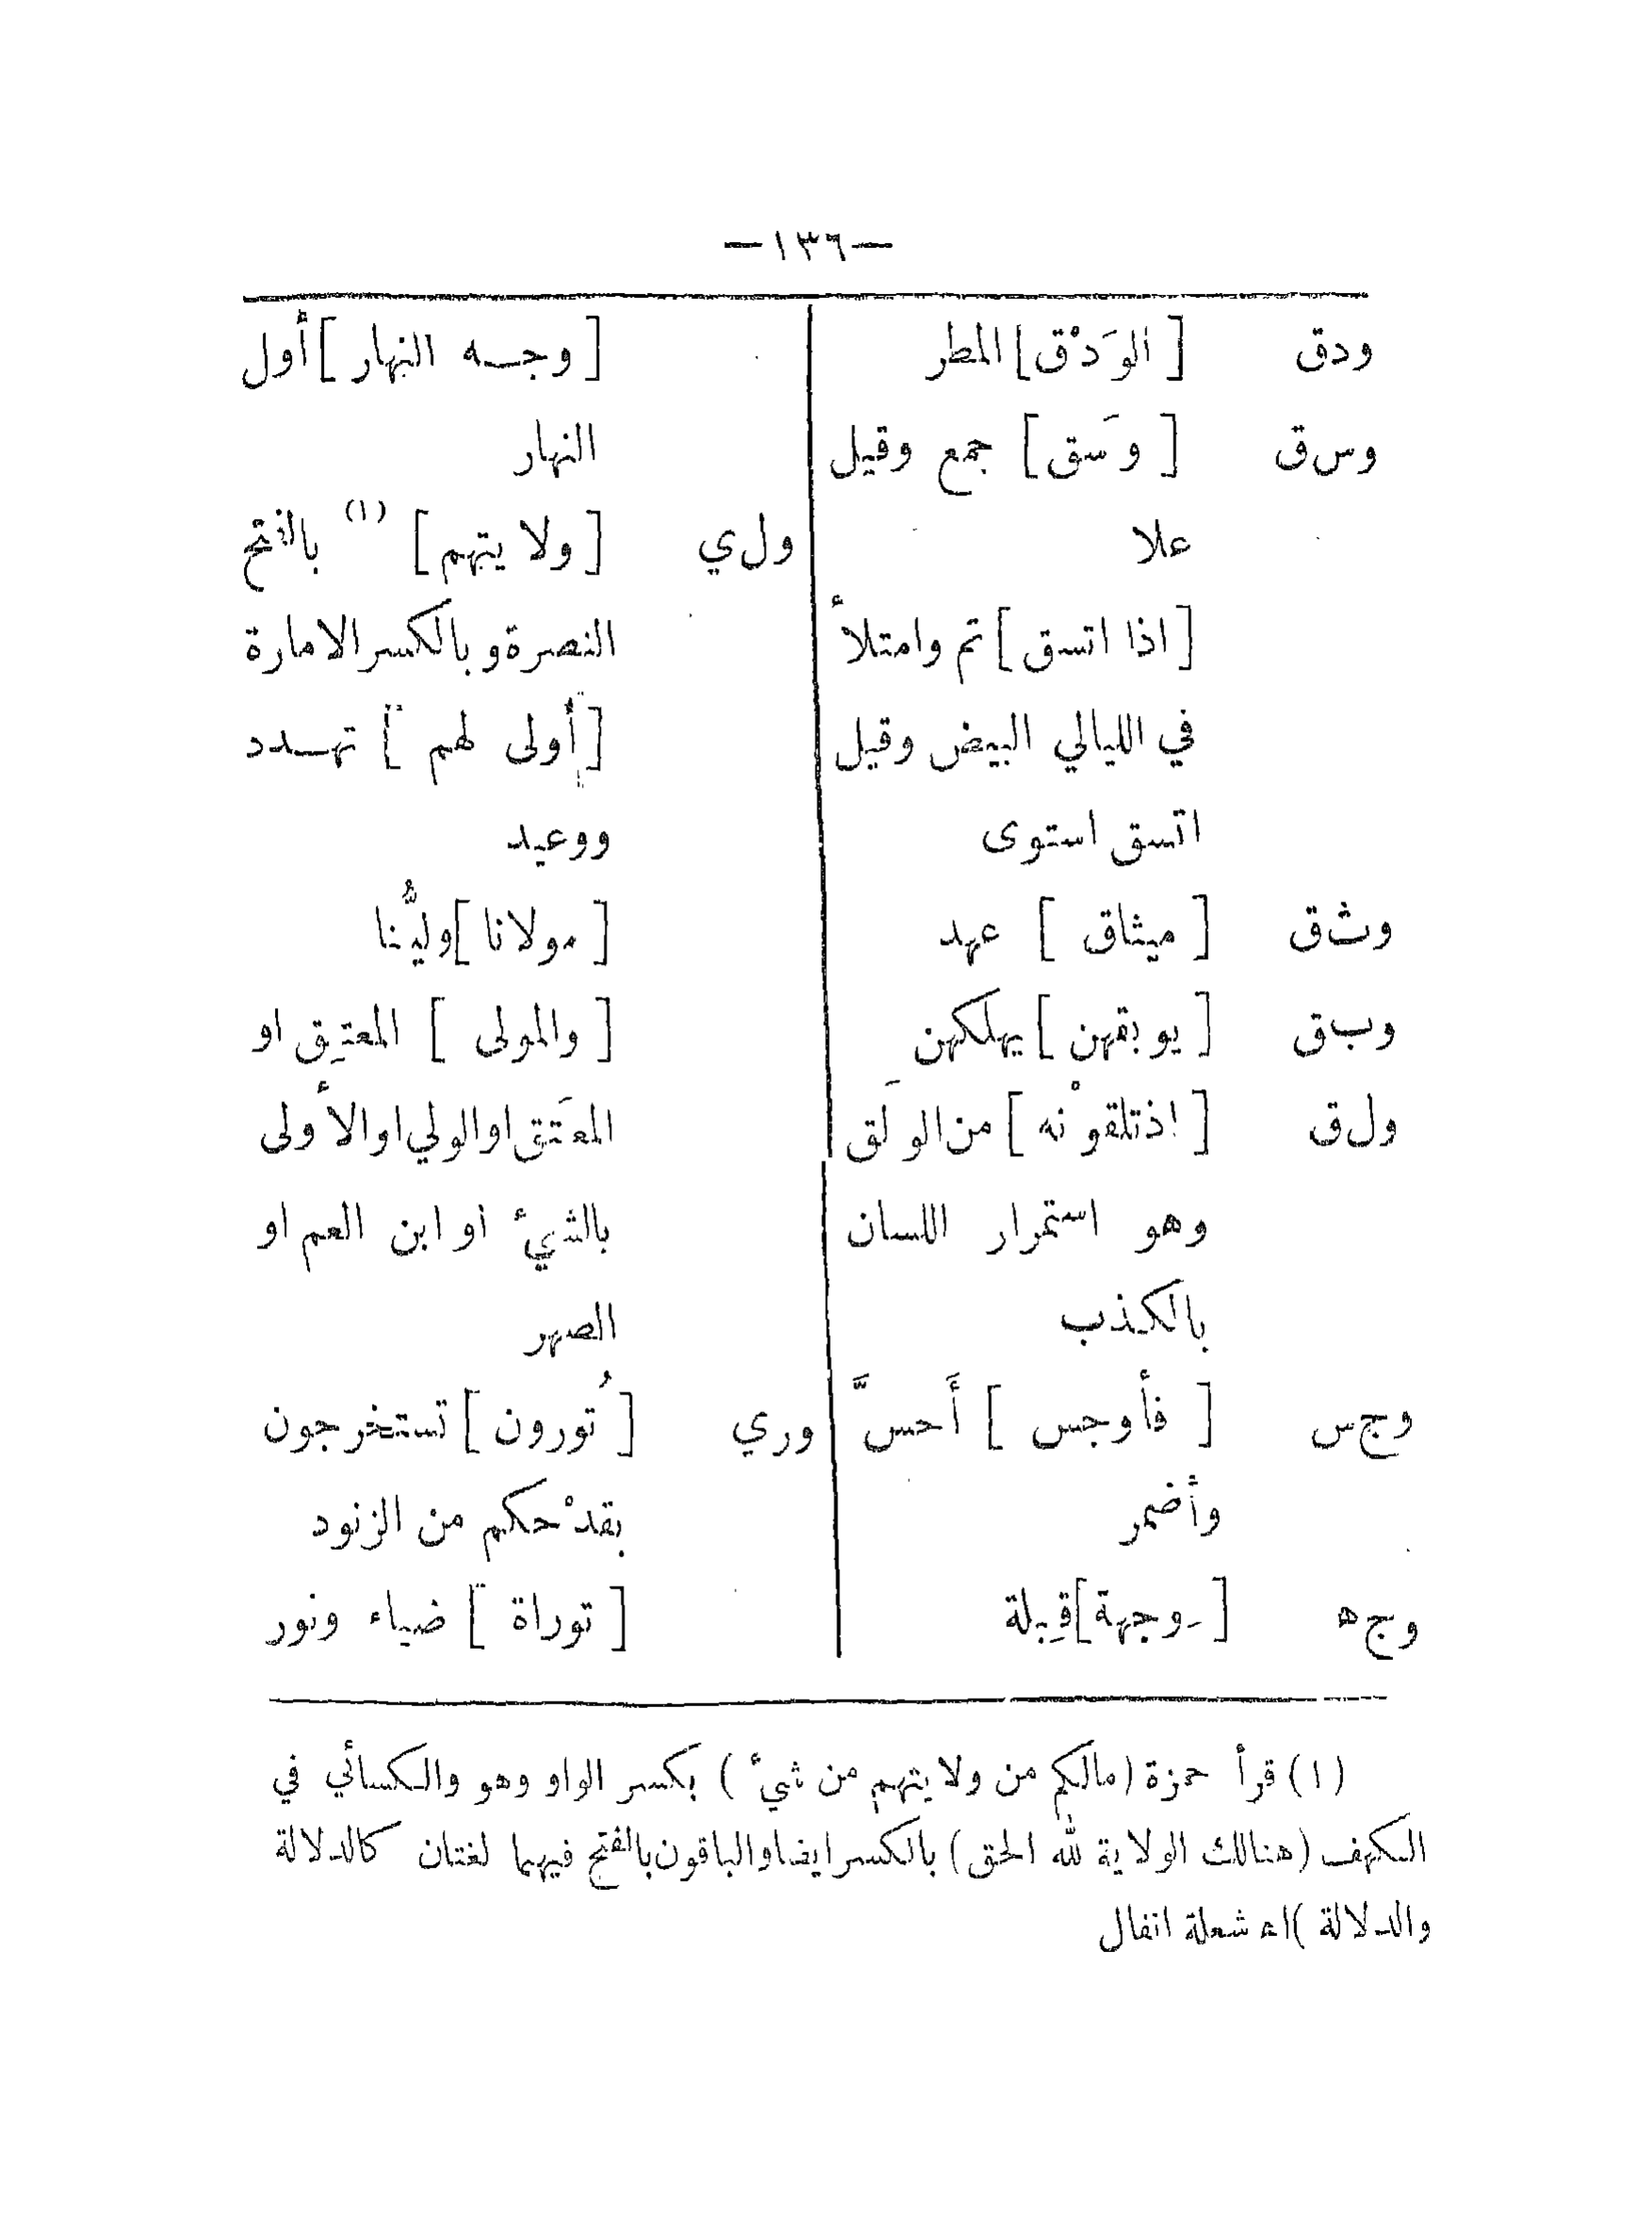 —١٣٦—
ودق [ الوَدْق] المطر
وس‌ق [ وَسق ] جمع وقيل
علا
[ اذا اتسق ] تم وامتلأ
في الليالي البيض وقيل
اتسق استوى
وث‌ق [ ميثاق ] عهد
وب‌ق [ يوبقهن ] يهلكهن
ول‌ق [ اذتلقوْنه ] من الوَلَق
وهو استمرار اللسان
بالكذب
وج‌س [ فأوجس ] أَحسَّ
وأضمر
وج‌ه [ وِجهة] قِبلة
[ وجه النهار ] أول
النهار
ول‌ي [ ولايتهم ] (١) بالفتح
النصرة وبالكسر الامارة
[ أولى لهم ] تهدد
ووعيد
[ مولانا ] وليُّنا
[ والمولى ] المعتِق او
المعتَق او الولي او الأولى
بالشيء او ابن العم او
الصهر
وري [ تُورون ] تستخرجون
بقدْحكم من الزنود
[ توراة ] ضياء ونور
(١) قرأ حمزة (مالكم من ولايتهم من شيء ) بكسر الواو وهو والكسائي في
الكهف (هنالك الولاية لله الحق) بالكسر ايضا والباقون بالفتح فيهما لغتان كالدلالة
والدلالة )اه شعلة انفال